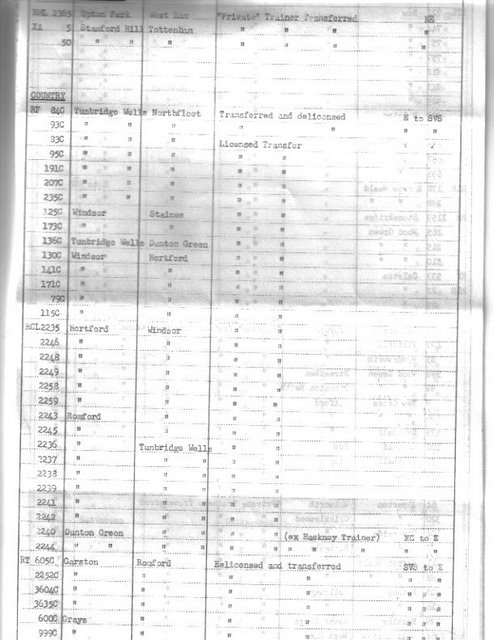 RML 2365 Upton Park West Ham "Private" Trainer Transferred NE
XA 5 Stamford Hill Tottenham " " "
50 " " " " " " "
COUNTRY
RF 84C Tunbridge Wells Northfleet Transferred and delicensed E to SVS
93C " " " " " "
83C " " " Licensed Transfer
95C " " " " "
191C " " " " "
207C " " " " "
235C " " " " "
125C Windsor Staines " "
173C " " " "
136C Tunbridge Wells Dunton Green " "
130C Windsor Hertford " "
141C " " " "
171C " " " "
79C " " " "
115C " " " "
RCL2235 Hertford Windsor " "
2246 " " " "
2248 " " " "
2249 " " " "
2258 " " " "
2259 " " " "
2243 Romford " " "
2245 " " " "
2236 " Tunbridge Wells " "
2237 " " " " "
2238 " " " " "
2239 " " " " "
2241 " " " " "
2242 " " " " "
2240 Dunton Green " " " " (ex Hackney Trainer) NE to E
2244 " " " " " " " " " "
RT 605C Garston Romford Relicensed and transferred SVS to E
2252C " " " " "
3604C " " " " "
3635C " " " " "
600C Grays " " " "
999C " " " " "